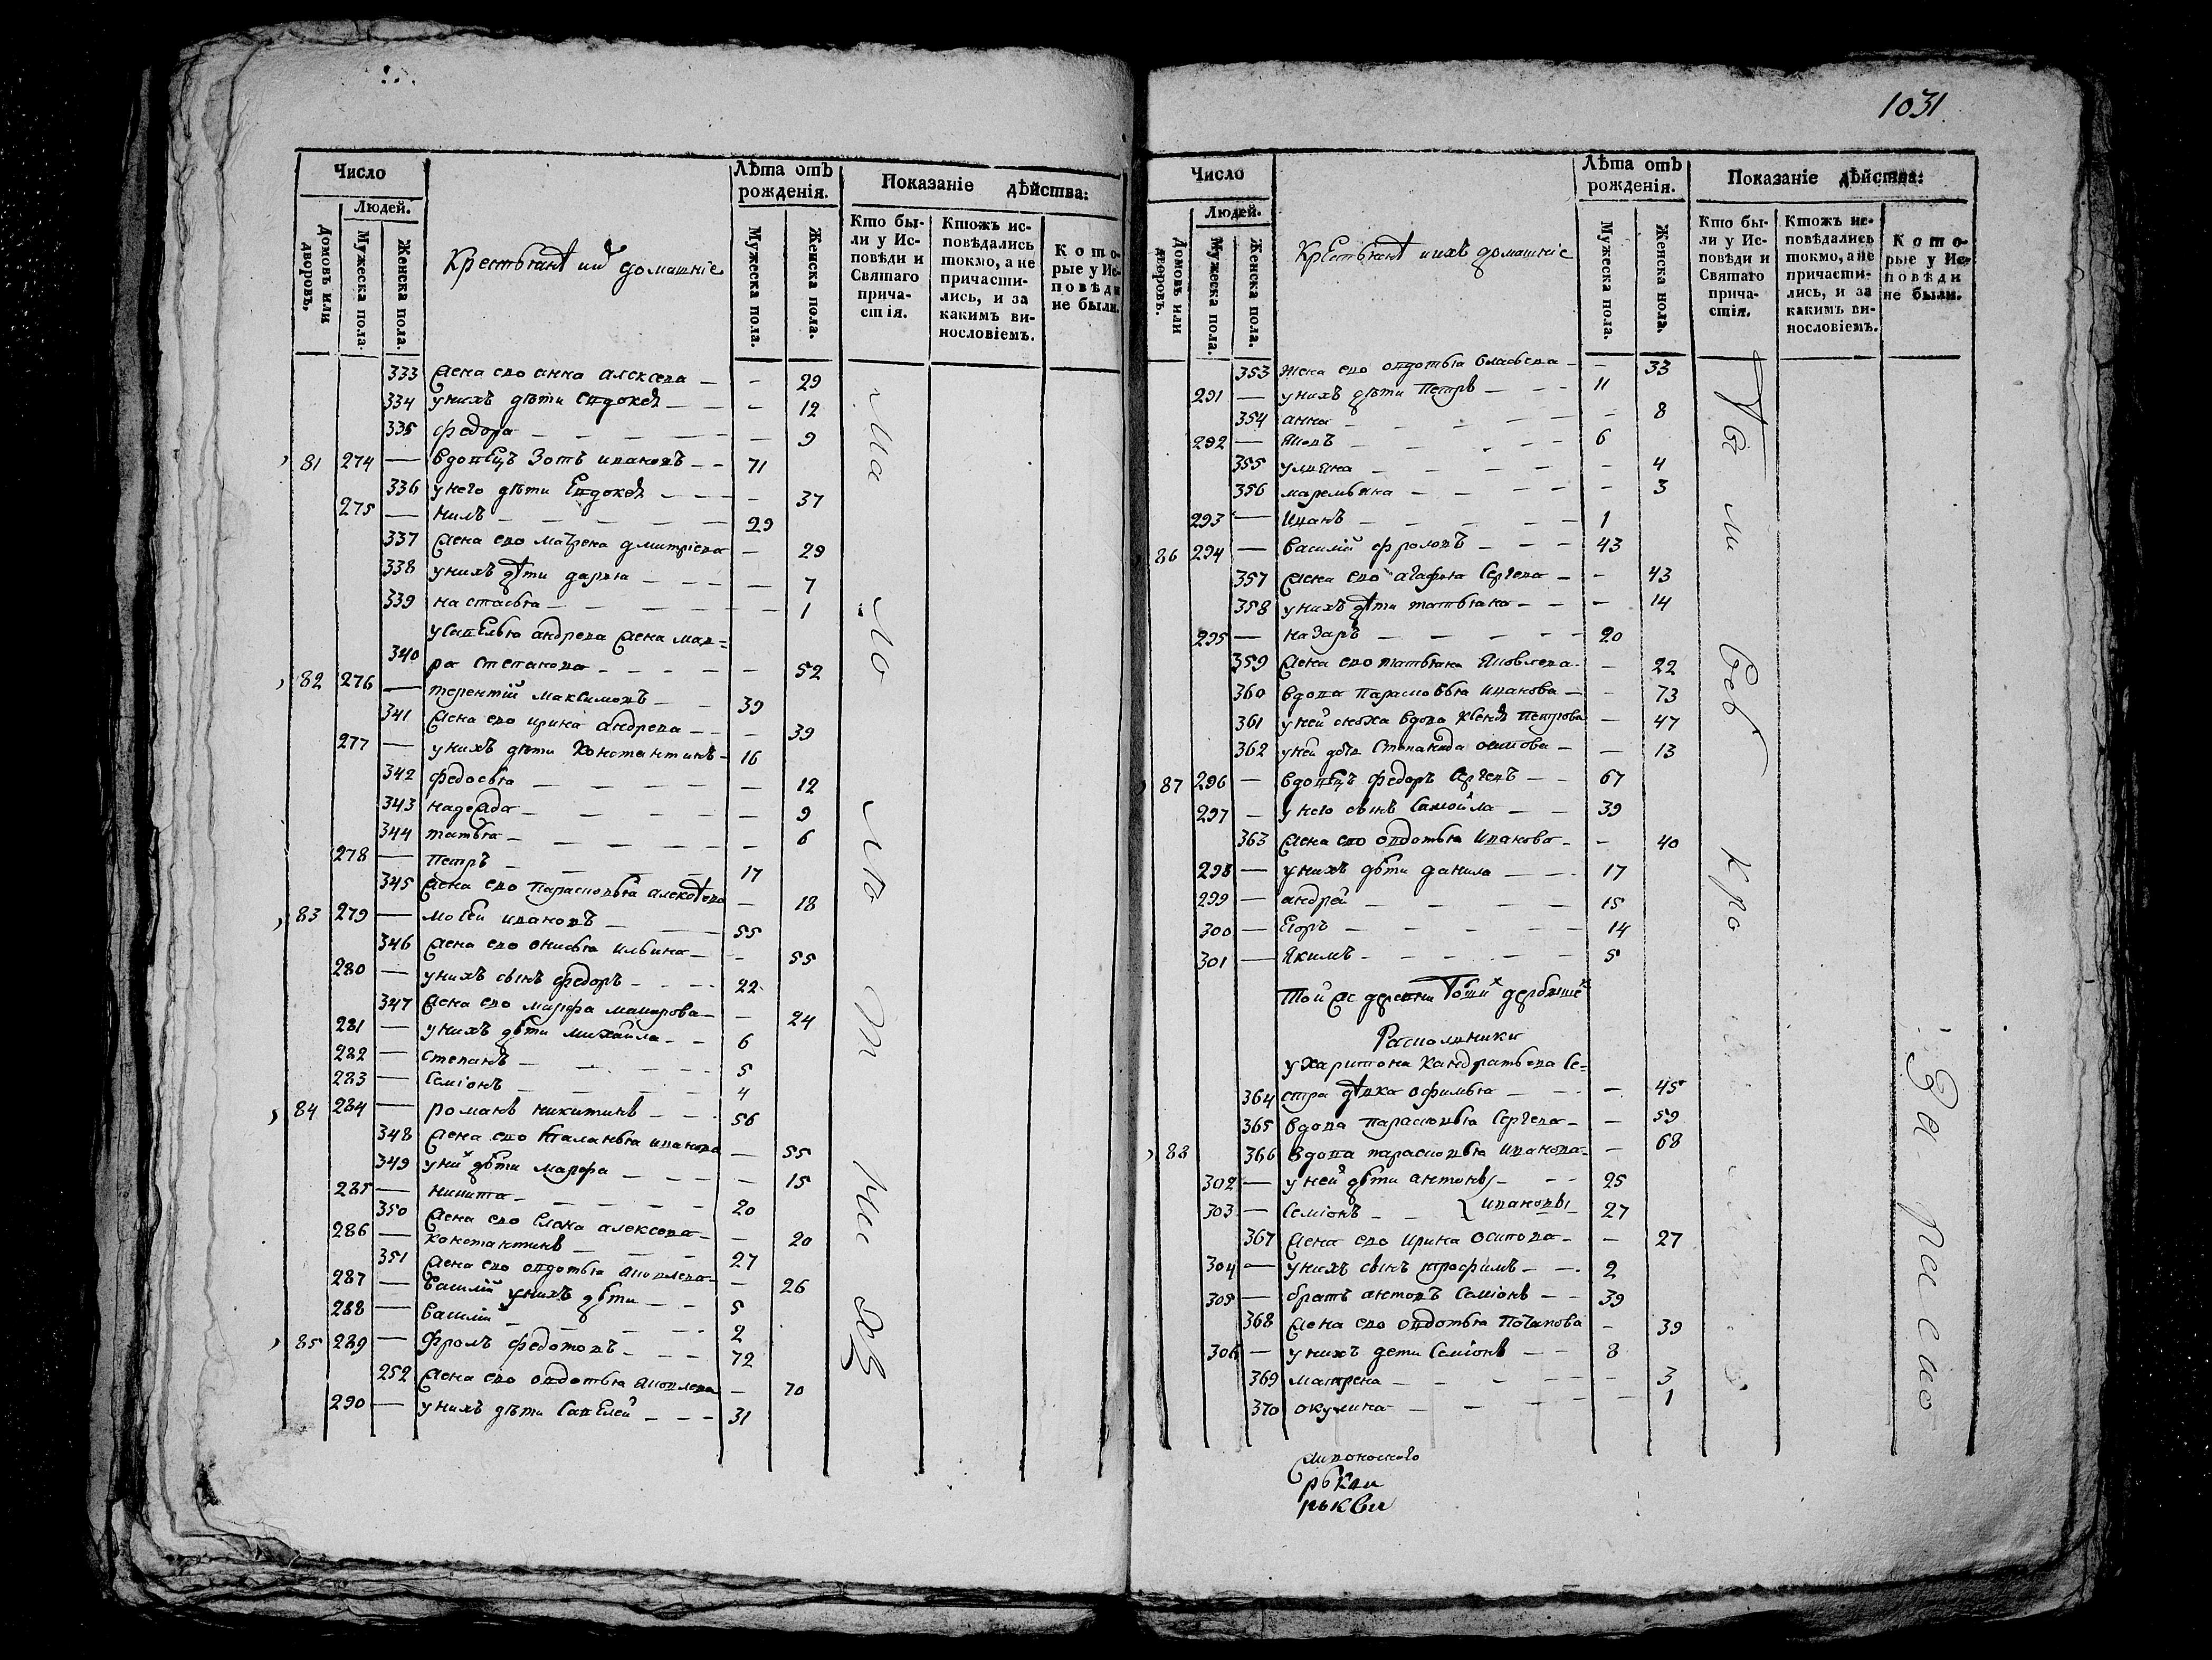 1031
Число
Людей.
Домовъ или дворовъ.
Мужеска пола.
Женска пола.
Крестьянѣ и ихъ домашніе
Лѣта отъ рожденія.
Мужеска пола.
Женска пола.
Показаніе дѣйства:
Кто были у Исповѣди и Святаго причастія.
Ктожъ исповѣдались токмо, а не причастились, и за какимъ винословіемъ.
Которые у Исповѣди не были.
333 жена ево анна алексева — - 29
334 унихъ дѣти евдокѣя — - 12
335 федора — — 9
81 274 — вдовецъ Зотъ ивановъ — 71
336 у него дѣти Евдокѣя — - 37
275 — нилъ — 29
337 жена ево матрена дмитріева — 29
338 унихъ дѣти дарья — — 7
339 настасья — — 1
у савелья андрева жена мав=
340 ра степанова — — 52
82 276 — терентій максимовъ — 39
341 жена ево ирина андрева — - 39
277 — унихъ дѣти Константинъ — 16
342 федосья — — 12
343 надежда — — 9
344 татья — — 6
278 — петръ — 17
345 жена ево парасковья алексѣева — 18
83 279 — мосей ивановъ — 55
346 жена ево онисья ильина — - 55
280 — унихъ сынъ федоръ — 22
347 жена ево марфа макарова — - 24
281 — унихъ дѣти михайла — 6
282 — степанъ — 5
283 — семіонъ — 4
84 284 — романъ никитинъ — 56
348 жена ево маланья иванова — 55
349 уних дѣти марфа — — 15
285 — никита — 20
350 жена ево елена алексева — — 20
286 — константинъ — 27
351 жена ево овдотья яковлева — — 26
287 — василій унихъ дѣти — 5
288 — василій — 2
85 289 — фролъ федотовъ — 72
252 жена ево овдотья яковлева — 70
290 — унихъ дѣти савелей — 31
Число
Людей.
Домовъ или дворовъ.
Мужеска пола.
Женска пола.
Крестьянѣ и ихъ домашніе
Лѣта отъ рожденія.
Мужеска пола.
Женска пола.
Показаніе дѣйства:
Кто были у Исповѣди и Святаго причастія.
Ктожъ исповѣдались токмо, а не причастились, и за какимъ винословіемъ.
Которые у Исповѣди не были.
353 жена ево овдотья власьева — - 33
291 — унихъ дѣти Петръ — 11
354 анна — - 8
292 — яковъ — 6
355 ульяна — - 4
356 маремьяна — - 3
293 — Иванъ — 1
86 294 — василій фроловъ — 43
357 жена ево агафья сергева — - 43
358 унихъ дѣти татьяна — — 14
295 — назаръ — 20
359 жена ево татьяна яковлева — 22
360 вдова парасковья иванова — - 73
361 у ней сноха вдова ксенѣя петрова — 47
362 у ней дочь степанида осипова — — 13
87 296 — вдовецъ федоръ сергевъ — 67
297 — у него сынъ самойла — 39
363 жена ево овдотья иванова — - 40
298 — унихъ дѣти данила — 17
299 — андрей — 15
300 — Егоръ — 14
301 — якимъ — 5
той же деревни
Раскольники
у харитона кандратьева се=
364 стра дѣвка офимья — — 45
365 вдова парасковья сергева — — 59
88 366 вдова парасковья иванова — — 68
302 — у ней дѣти антонъ — 25
303 — семіонъ — } ивановы 27
367 жена ево ирина осипова — — 27
304 — унихъ сынъ трофимъ — 2
305 — братъ антонъ семіонъ — 39
368 жена ево овдотья потапова — 39
306 — унихъ дети семіонъ — 8
369 матрена — - 3
370 окулина — — 1
За раско